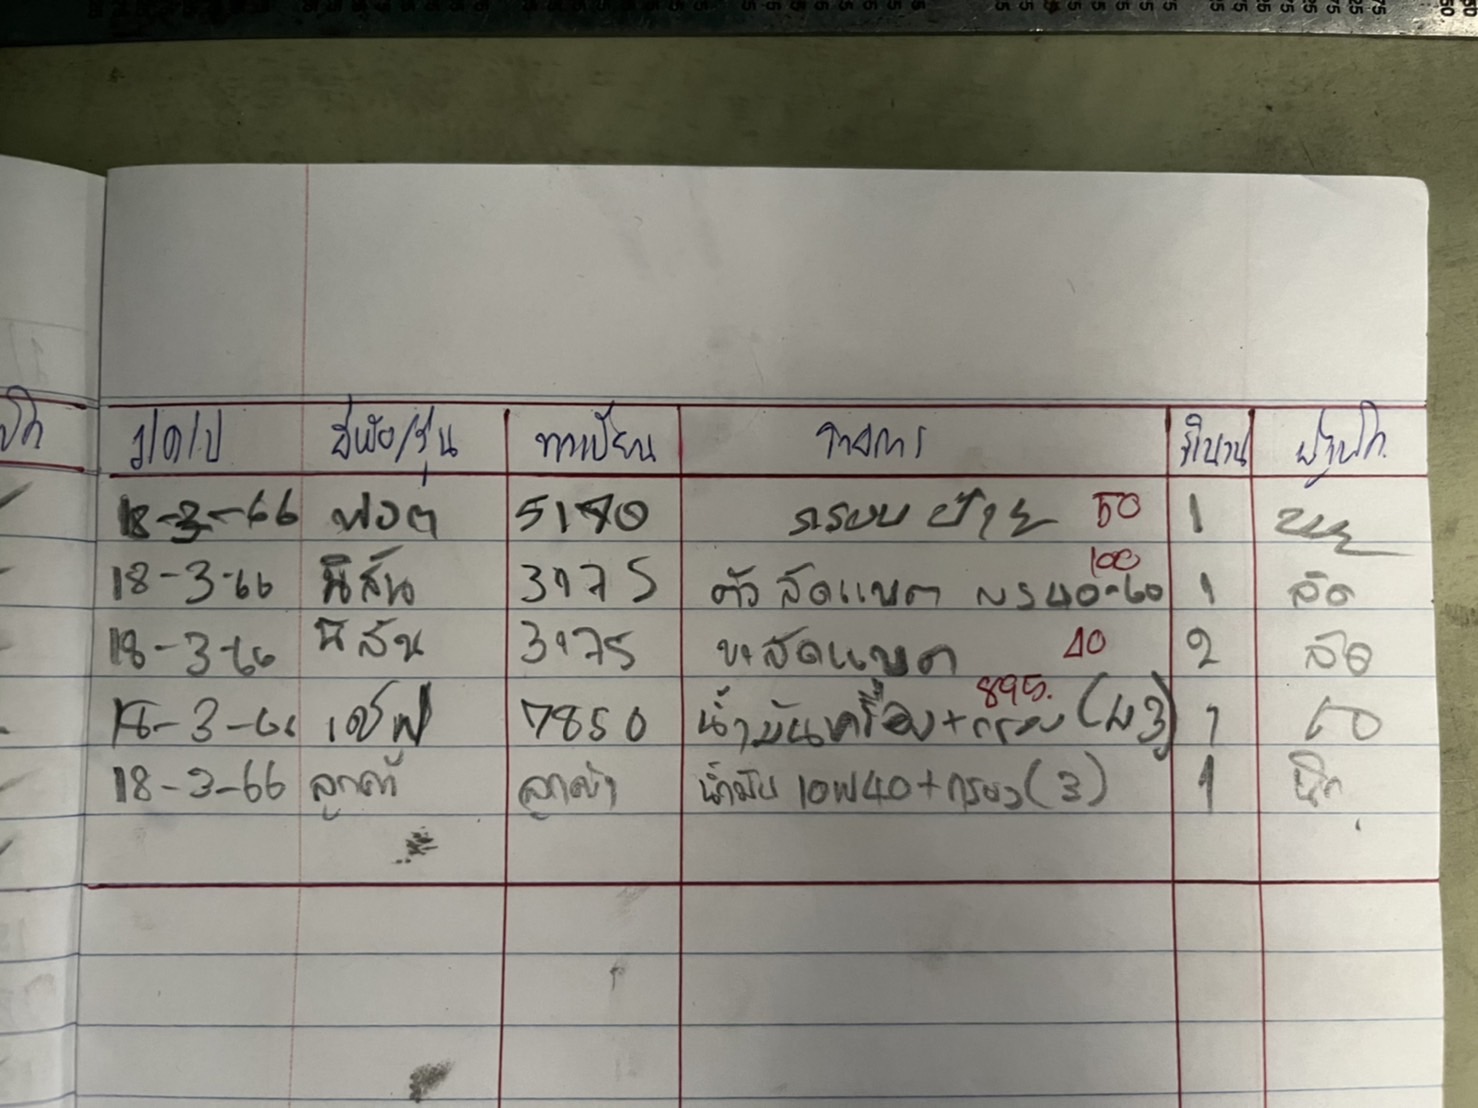 ว/ด/ป ยี่ห้อ/รุ่น ทะเบียน รายการ จำนวน ผู้เบิก
18-3-66 ฟอด 5170 กรอบป้าย 50 1
18-3-66 นิสัน 3175 ตัวล๊อดแบต NS40-60 100 1
18-3-66 นิสัน 3175 ขาล๊อดแบต 40 2
18-3-66 เชฟ 7850 น้ำมันเครื่อง+กรอง 895. 1
18-3-66 ลูกค้า ลูกค้า น้ำมัน 10W40+กรอง (3) 1